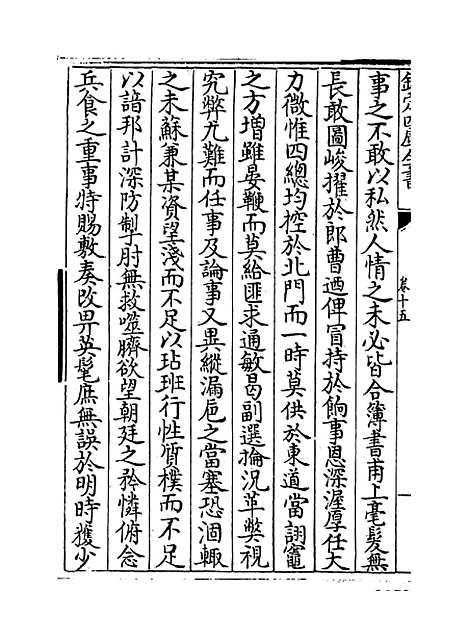 欽定四庫全書
卷十五
事之不敢以私然人情之未必皆合簿書甫上毫髮無
長敢圖峻擢於郎曹迺俾冒持於餉事恩深渥厚任大
力微惟四總均控於北門而一時莫供於東道當詡竈
之方增雖晏鞭而莫給匪求通敏曷副選掄況革弊視
究弊尤難而任事及論事又異縱漏巵之當塞恐涸轍
之未蘇兼某資望淺而不足以玷班行性質樸而不足
以諳邦計深防掣肘無救噬臍欲望朝廷之矜憐俯念
兵食之重事特賜敷奏改畀英髦庶無誤於明時獲少